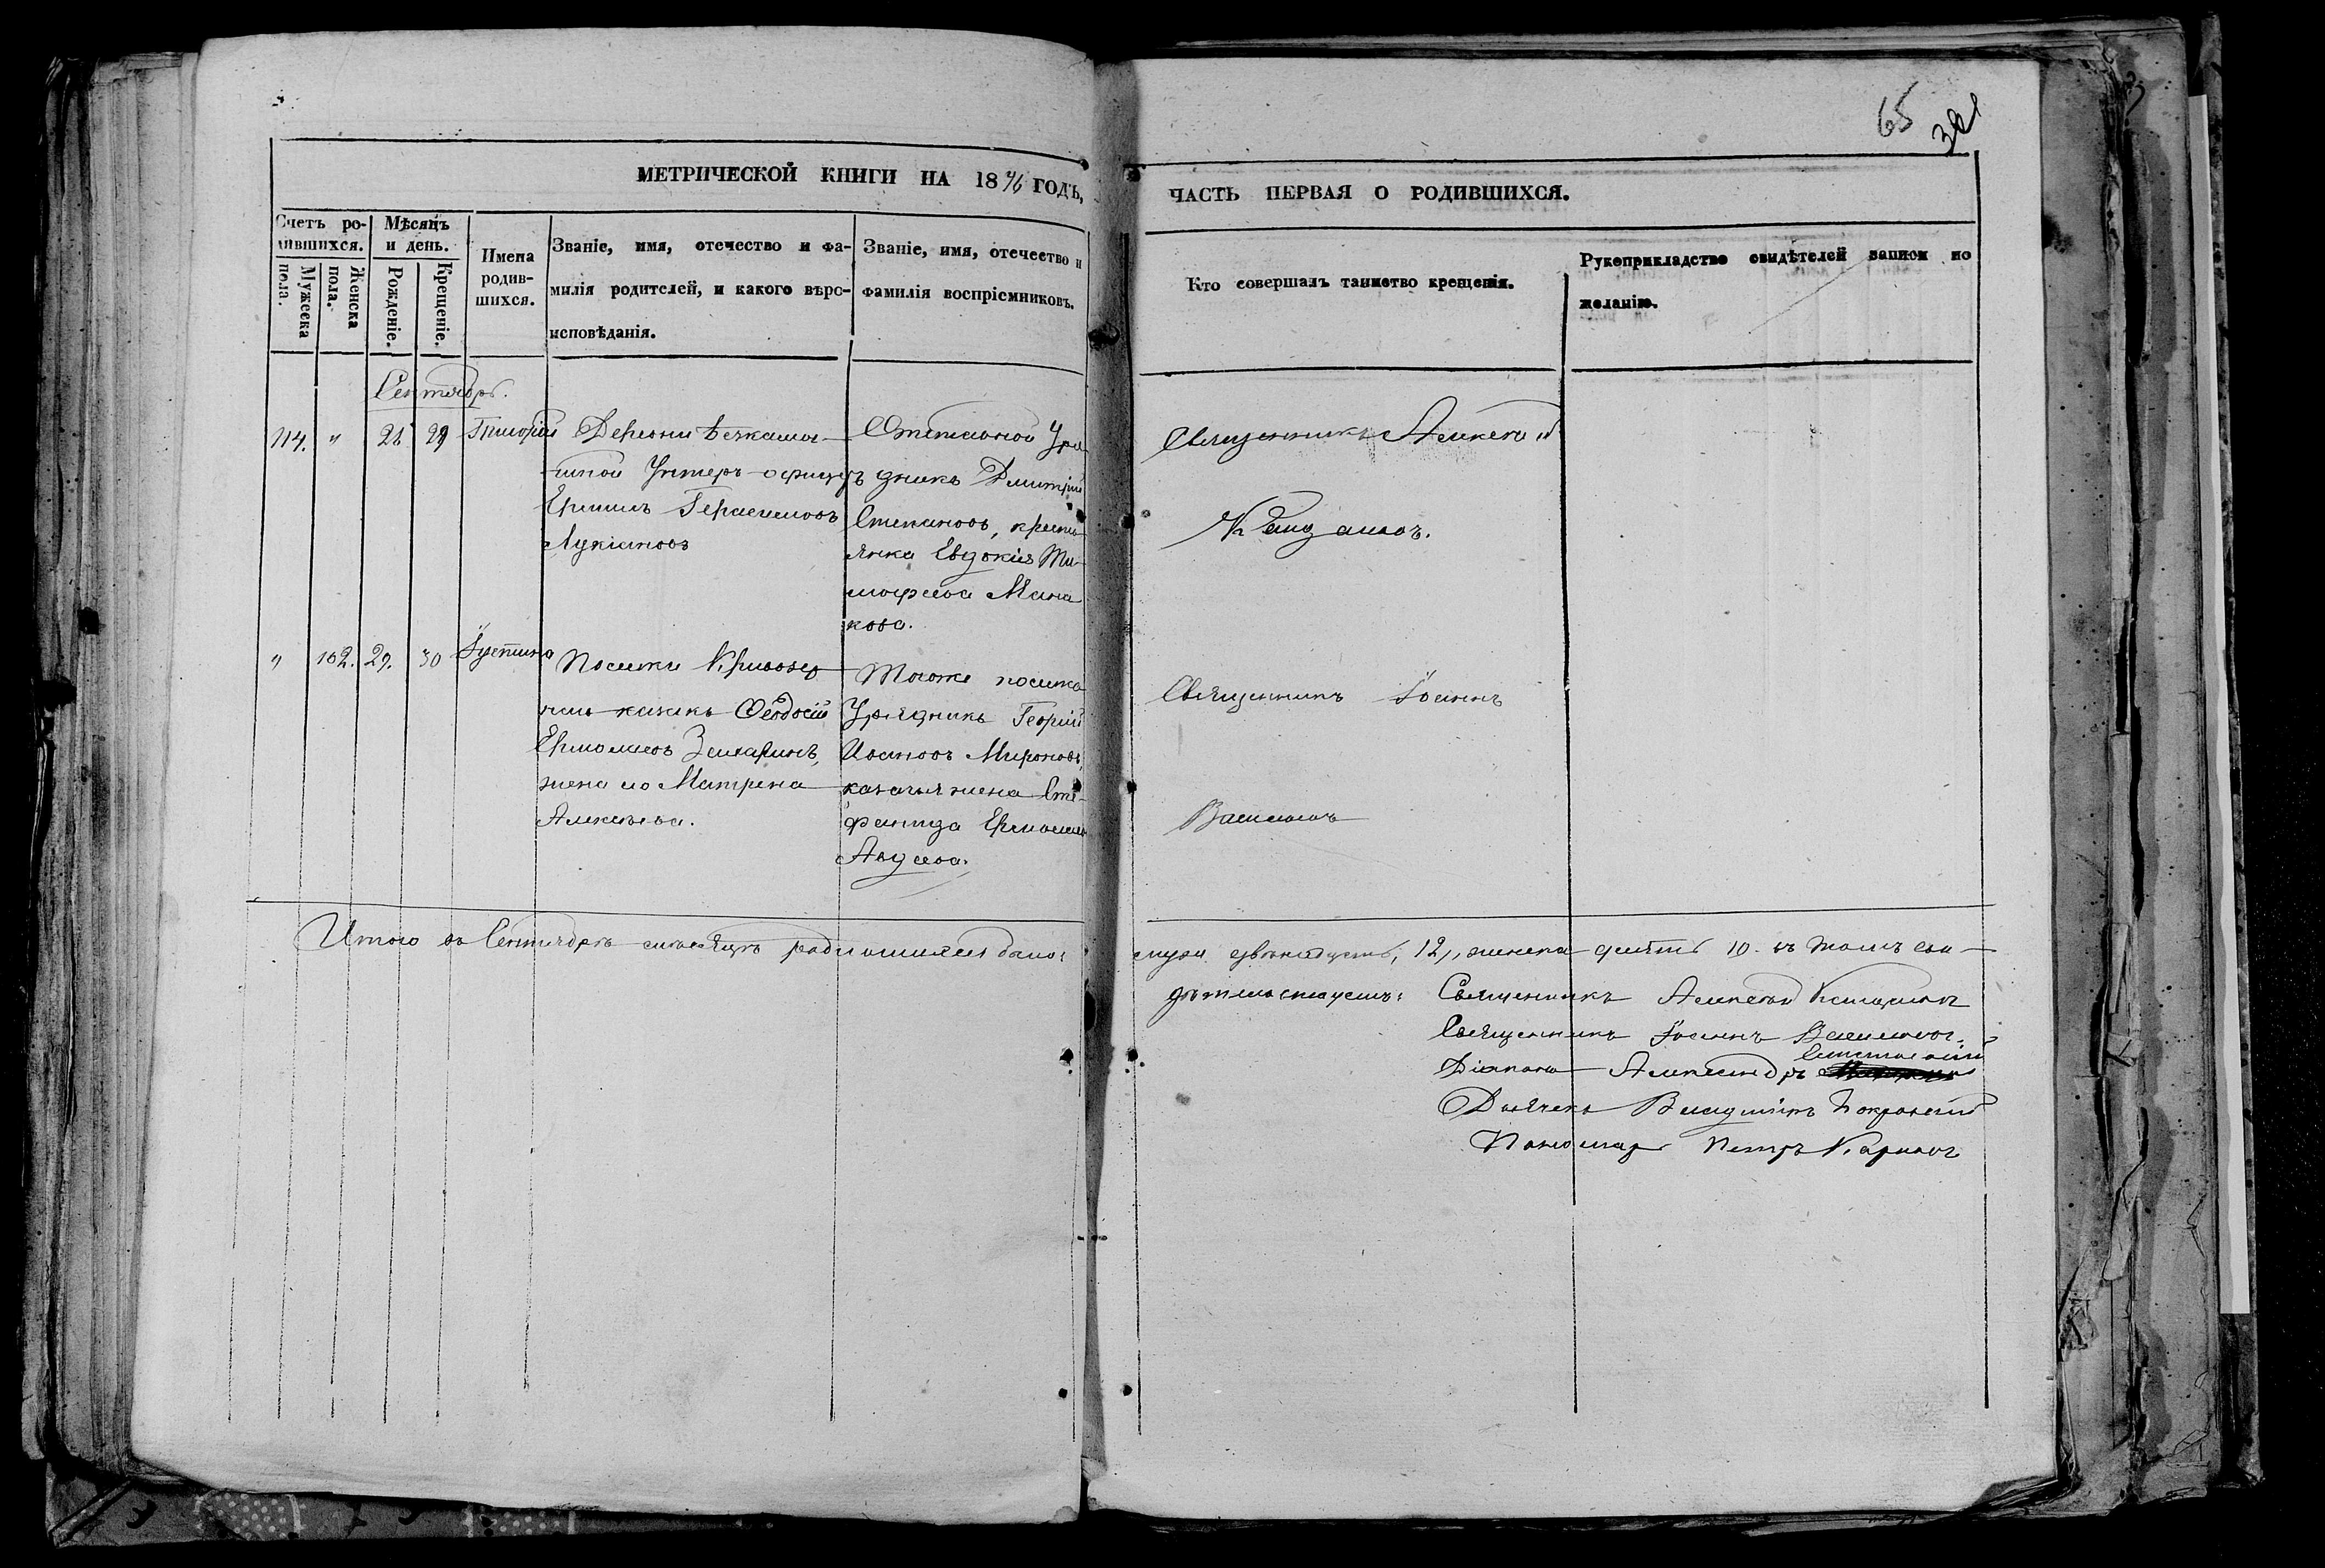 65
381
МЕТРИЧЕСКОЙ КНИГИ НА 1846 ГОДЪ,
ЧАСТЬ ПЕРВАЯ О РОДИВШИХСЯ.
Счетъ ро-
дившихся.
Мужеска
пола.
Женска
пола.
Мѣсяцъ
и день.
Рожденіе.
Крещеніе.
Имена
родив-
шихся.
Званіе, имя, отечество и фа-
милія родителей, и какого вѣро-
исповѣданія.
Званіе, имя, отечество и
фамилія воспріемниковъ.
Кто совершалъ таинство крещенія.
Рукоприкладство свидѣтелей записи по
желанію.
Сентябрь.
114. " 28 29 Григорій
Деревни
Унтеръ-офицеръ
Герасимовъ
Лукіановъ
Отставной Уря
дникъ Дмитрій
Степановъ, кресть
янка Евдокія Ти-
мофеева Мана
кова.
Священникъ Алексей
Кандаловъ.
" 102. 29. 30 Іустина
Поселка Кривоозер
казакъ Феодосій
Ермолаевъ
жена его Матрена
Алексеева.
Тогоже поселка
Урядникъ Георгій
Ивановъ Мироновъ,
казачья жена Сте-
фанида Ермолаева
Авдеева.
Священникъ Іоаннъ
Васильевъ
Итого въ Сентябре месяцѣ родившихся было:
мужеска двенадцать, 12, женска десять 10. въ томъ сви-
детельствуемъ: Священникъ Алексей
Священникъ Іоаннъ Васильевъ.
Діаконъ Александръ
Дьячекъ Владиміръ Покровскій
Пономарь Петръ Карповъ